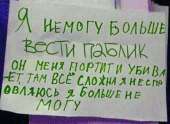 Я НЕМОГУ БОЛЬШЕ
ВЕСТИ ПАБЛИК
ОН МЕНЯ ПОРТИТ И УБИВА
ЕТ ТАМ ВСЁ СЛОХНА Я НЕ СПР
ОВЛЯЮСЬ Я БОЛЬШЕ НЕ
МОГУ